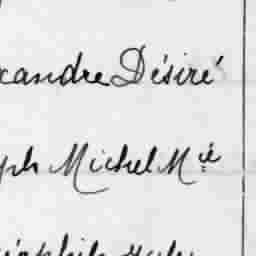 xandre Désiré
ph Michel M^ie